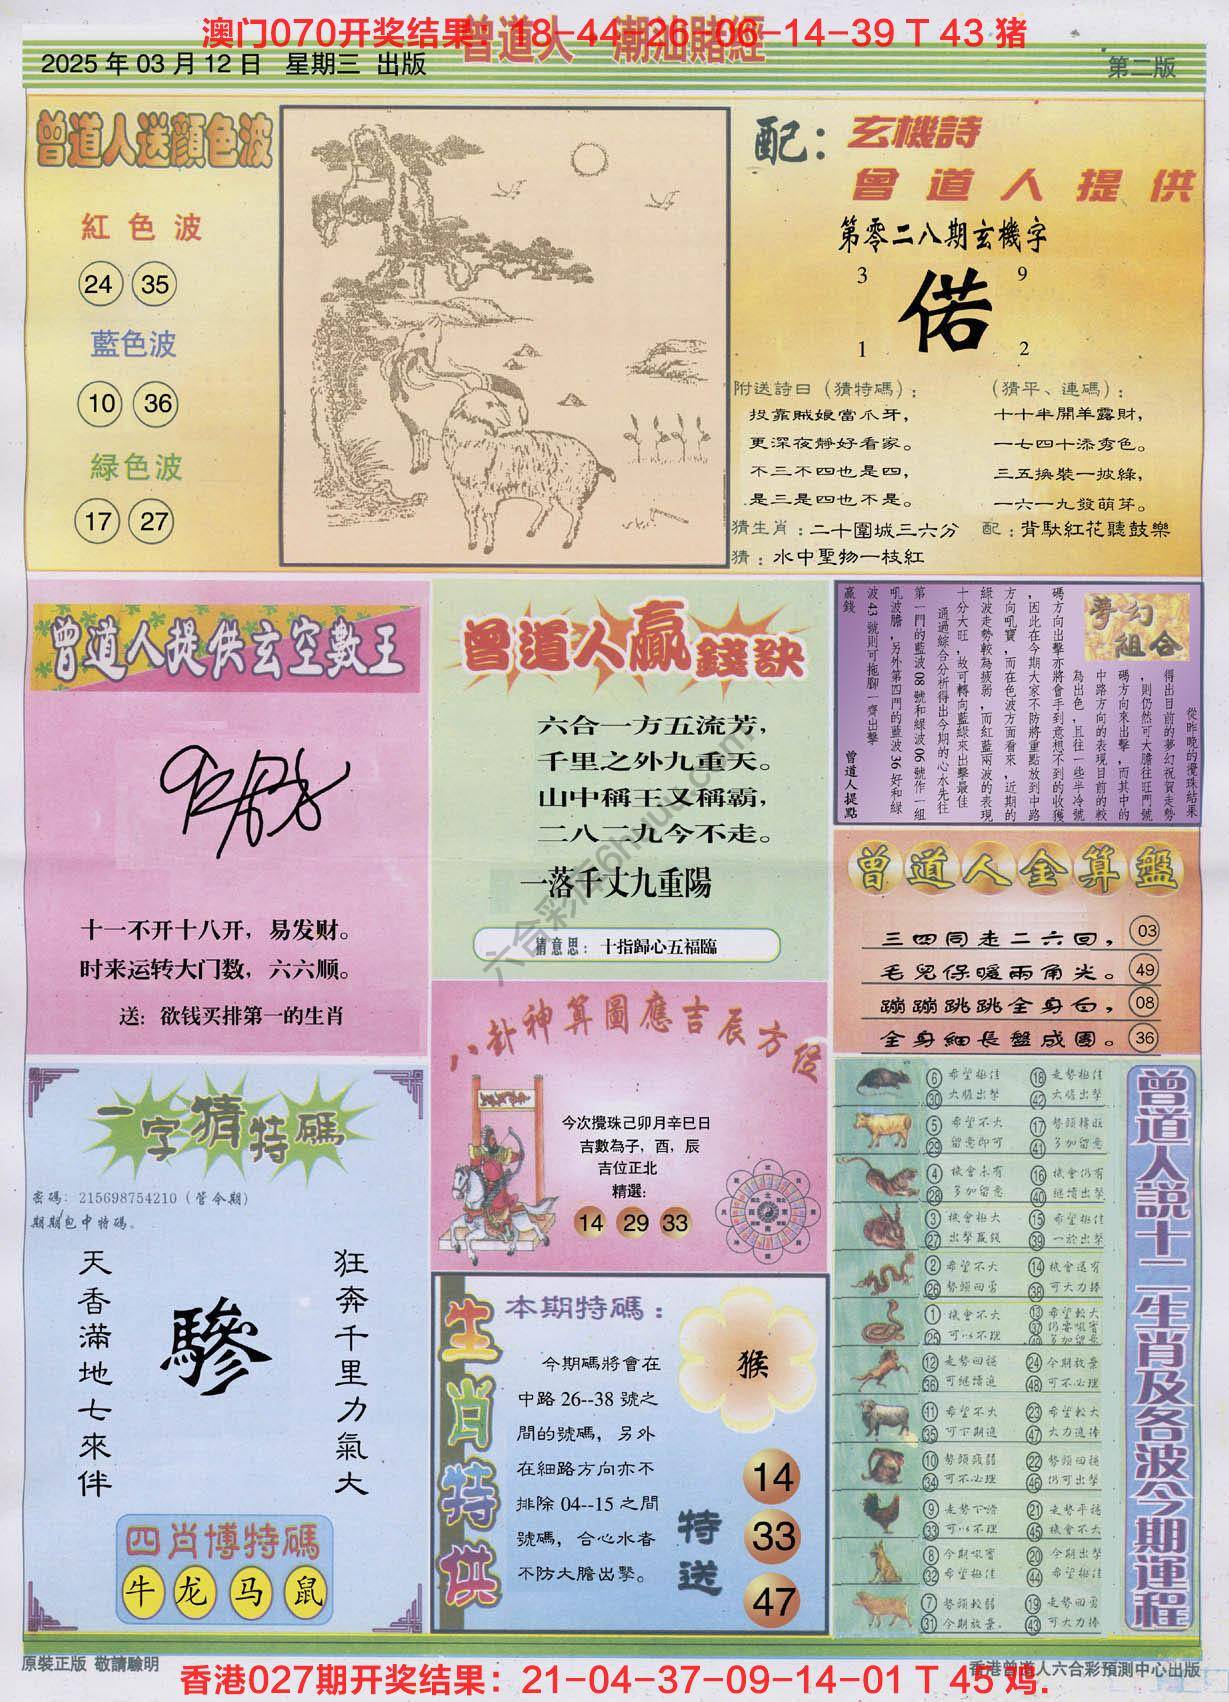 澳门070开奖结果：18-44-26-06-14-39 T 43 猪
曾道人 潮汕賭經
2025 年 03 月 12 日 星期三 出版
第二版
曾道人送顏色波
紅色波
24 35
藍色波
10 36
緑色波
17 27
配：玄機詩
曾道人提供
第零二八期玄機字
3 9
偌
1 2
附送詩曰（猜特碼）：
投靠賊娘當爪牙，
更深夜靜好看家。
不三不四也是四，
是三是四也不是。
（猜平、連碼）：
十十半開羊露財，
一七四十添秀色。
三五换裝一披綠，
一六一九發萌芽。
猜生肖：二十圍城三六分
配：背馱紅花聽鼓樂
猜：水中聖物一枝紅
曾道人提供玄空數王
十一不开十八开，易发财。
时来运转大门数，六六顺。
送：欲钱买排第一的生肖
曾道人贏錢訣
六合一方五流芳，
千里之外九重天。
山中稱王又稱霸，
二八二九今不走。
一落千丈九重陽
猜意思：十指歸心五福臨
夢幻組合
從昨晚的攪珠結果
得出目前的夢幻祝賀走勢
，則仍然可大膽往旺門號
碼方向來出擊，而其中的
中路方向的表現目前的較
為出色，且往一些半冷號
碼方向出擊亦將會手到意想不到的收獲
，因此在今期大家不防將重點放到中路
方向吼寶，而在色波方面看來，近期的
綠波走勢較為疲弱，而紅藍兩波的表現
十分大旺，故可轉向藍綠來出擊最佳
通過綜合分析得出今期的心水先往
第一門的藍波 08 號和綠波 06 號作一組
吼波膽，另外第四門的藍波 36 好和綠
波 43 號則可拖腳一齊出擊
贏錢
曾道人提點
曾道人金算盤
三四同走二六回， 03
毛兒保暖兩角尖。 49
蹦蹦跳跳全身白， 08
全身細長盤成團。 36
八卦神算圖應吉辰方位
今次攪珠己卯月辛巳日
吉數為子，酉，辰
吉位正北
精選：
14 29 33
一字猜特碼
密碼：215698754210（管今期）
期期包中特碼。
天香滿地七來伴
驂
狂奔千里力氣大
四肖博特碼
牛 龙 马 鼠
生肖特供
本期特碼：
今期碼將會在
中路 26--38 號之
間的號碼，另外
在細路方向亦不
排除 04--15 之間
號碼，合心水者
不防大膽出擊。
猴
特送
14
33
47
曾道人說十二生肖及各波今期運程
6 希望極佳 18 走勢極佳
30 大膽出擊 42 大膽出擊
5 希望不大 17 勢頭轉旺
29 留意即可 41 多加留意
4 機會未有 16 機會仍有
28 多加留意 40 繼續出擊
3 機會極大 15 希望極佳
27 出擊贏錢 39 一於出擊
2 希望不大 14 機會還有
26 勢頭回勇 38 可大力捧
1 機會不大 13 希望較大
25 可以不理 37 仍要吼實
49 多加留意
12 走勢回穩 24 今期放棄
36 可繼續追 48 可不必理
11 希望不大 23 希望較大
35 可下期追 47 大力追捧
10 勢頭疲弱 22 勢頭回穩
34 可不必理 46 仍可出擊
9 走勢下滑 21 走勢平穩
33 可以不理 45 機會不大
8 今期吼實 20 今期出擊
32 希望極佳 44 希望極佳
7 勢頭較弱 19 走勢回勇
31 今期放棄。 43 可大力捧
六合彩库6huuc.com
原裝正版 敬請驗明
香港曾道人六合彩預測中心出版
香港027期开奖结果：21-04-37-09-14-01 T 45 鸡.